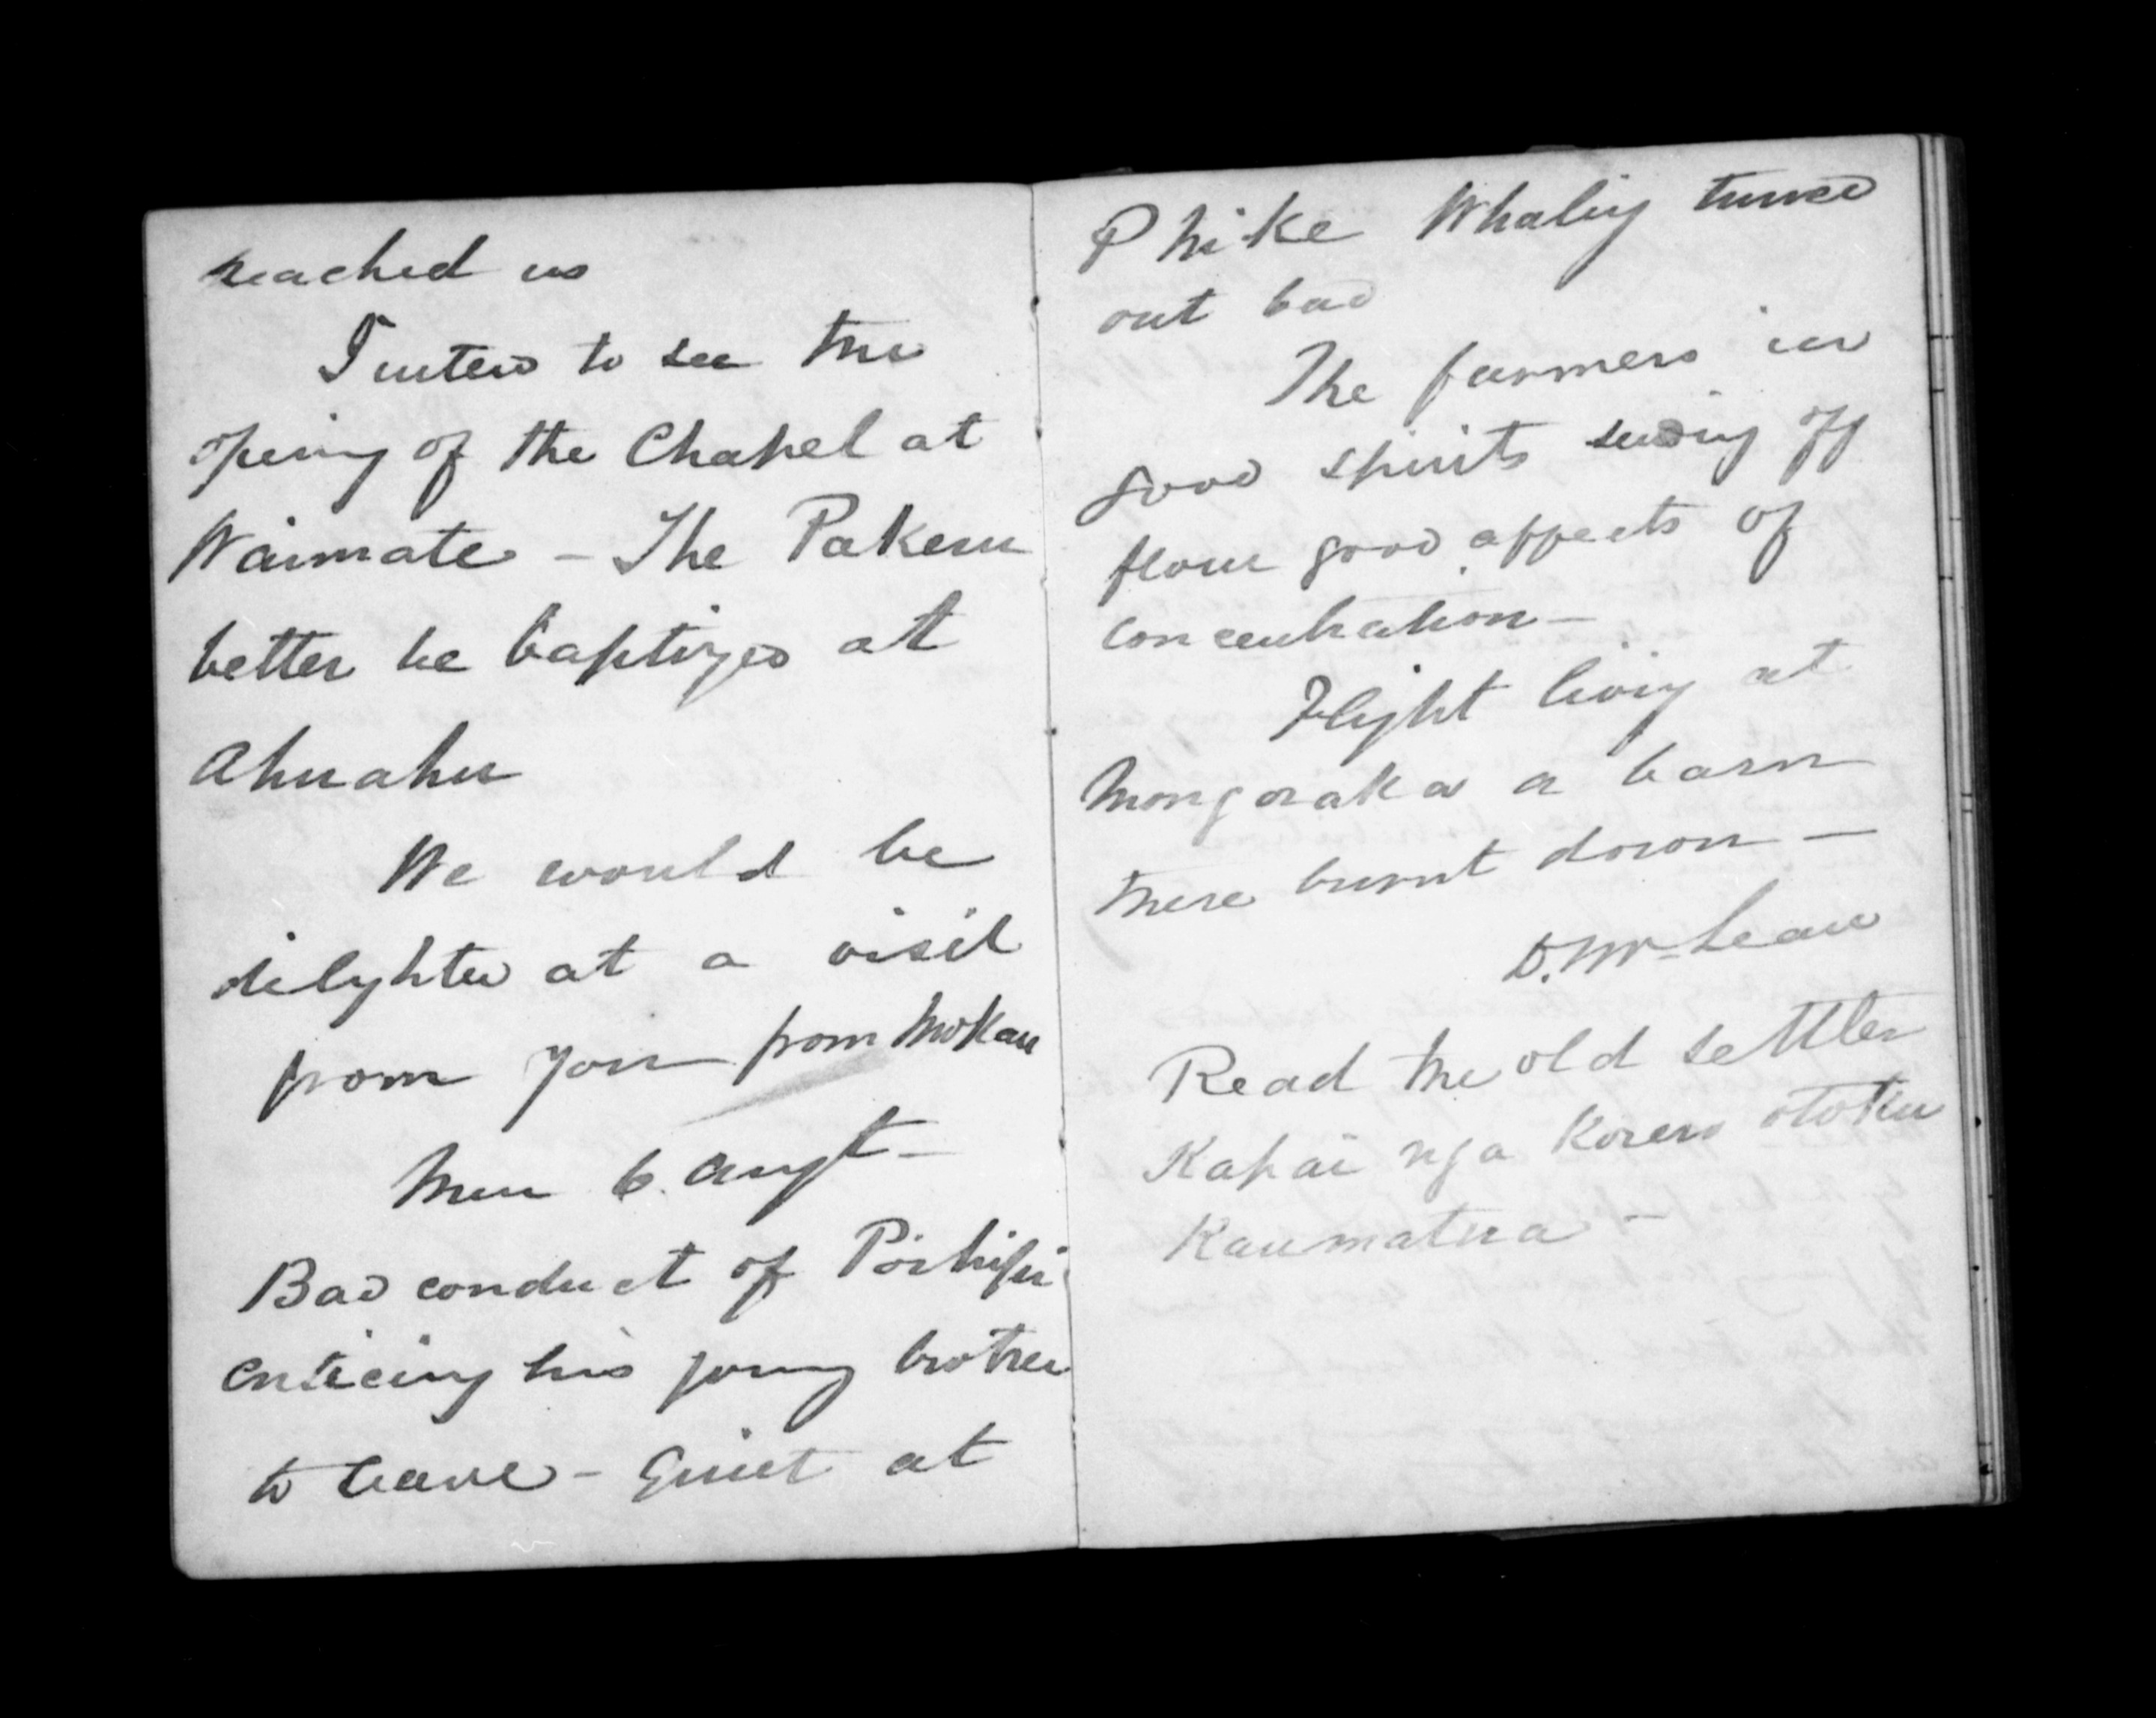 reached us
I intend to see the
opening of the Chapel at
Waimate - The Pakeru
better be baptized at
Ahuahu
We would be
delighted at a visit
from you from Mokau
6. Augt -
Bad conduct of
enticing his young brother
to leave - Quiet at
Whaling turned
out bad
The farmers in
good spirits sending off
flour good affects of
concentration -
Flight living at
Mongoraka a barn
there burnt down -
D. McLean
Read the old settler
Kapai nga Korero otoku
Kaumatua -